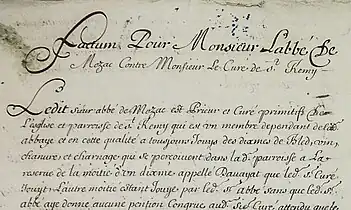 Factum Pour Monsieur Labbé De
Mozac Contre Monsieur Le Cure de St. Remy
Ledit sieur abbé de Mozac est Prieur et Curé primitif de
Leglise et parroisse de St. Remy qui est un membre dependant de
abbaye et en cette qualité a tousjours Jouy des dixmes de Bled, vin,
chanure et charnage qui se perçouvent dans lad. parroisse a La
reserve de la moitié d'un dixme appellé Bauayat que led. St. Curé
Jouyt, Lautre moitié estant Jouye par led. St. abbé sans que led. St.
abbé aye donné aucune pention Congrue aud. St. Curé attendu que le